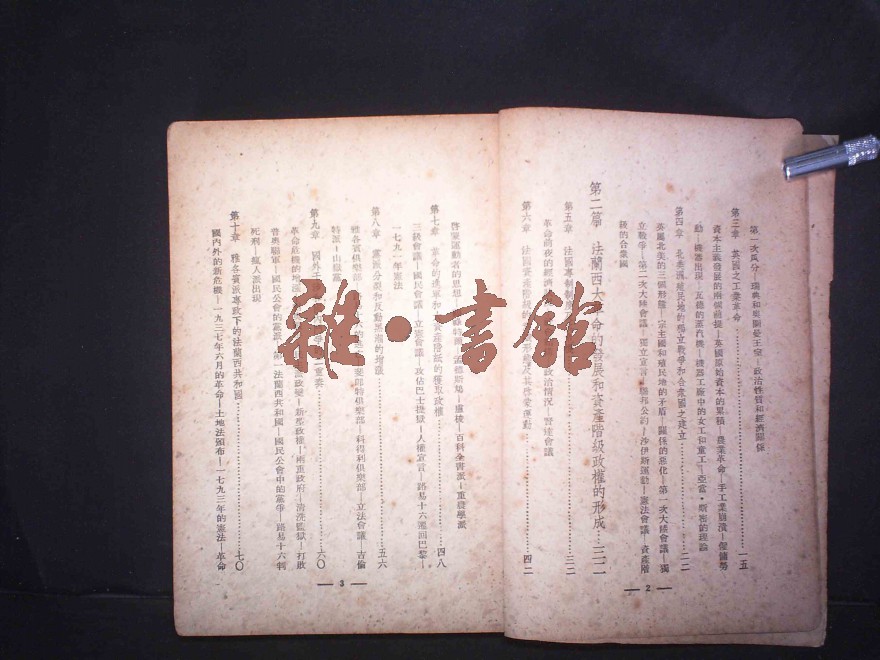 第一次瓜分—瑞典和奧國愛王室—政治性質和經濟關係
第三章 英國之工業革命……一五
資本主義發展的兩個前提—英國原始資本的累積—農業革命—手工業崩潰—僱傭勞
動—機器出現—瓦德的蒸汽機—機器工廠中的女工和童工—亞當·斯密的理論
第四章 北美洲殖民地的獨立戰爭和合衆國之建立……二二
英屬北美的三個形態—宗主國和殖民地的矛盾—關係的惡化—第一次大陸會議—獨
立戰爭—第二次大陸會議—獨立宣言—聯邦公約—沙伊斯運動—憲法會議—資產階
級的合衆國
第二篇 法蘭西大革命的發展和資產階級政權的形成…三二
第五章 法國專制制……三二
革命前夜的經濟 政治情況—三級會議
第六章 法國資產階級的 及其啓蒙運動……四二
啓蒙運動者的思想 孟德斯鳩—盧梭—百科全書派—重農學派
第七章 革命的進軍和資產階級的獲取政權……四八
三級會議—國民會議—立憲會議—攻佔巴士提獄—人權宣言—路易十六返回巴黎—
一七九一年憲法
第八章 黨派分裂和反動黑潮的增漲……五六
雅各賓俱樂部 斐耶特俱樂部—科得利俱樂部—立法會議—吉倫
特派—山嶽黨
第九章 國外干 二重奏……六〇
革命危機的增漲 政變—新型政權—兩重政府—清洗監獄—打敗
普奧聯軍—國民公會的黨派—第一法蘭西共和國—國民公會中的黨爭—路易十六判
死刑—瘋人派出現
第十章 雅各賓派專政下的法蘭西共和國……七〇
國內外的新危機—一九三七年六月的革命—土地法頒布—一七九三年的憲法—革命
— 2 —
— 3 —
雜·書館